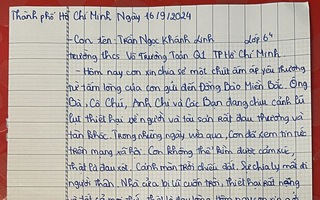 Thành phố Hồ Chí Minh Ngày 16/9/2024
- Con tên: Trần Ngọc Khánh Linh Lớp 6⁴
trường thcs Võ Trường Toản Q1 TP Hồ Chí Minh
- Hôm nay con xin chia sẻ một chút ấm áp yêu thương
từ tấm lòng của con gửi đến Đồng Bào Miền Bắc. Ông
Bà, Cô Chú, Anh Chị và Các Bạn đang chịu cảnh lũ
lụt thiệt hại về người và tài sản Rất đau thương và
tàn khốc. Trong những ngày vừa qua, Con đã xem tin tức
trên mạng xã hội. Con không thể kìm được cảm xúc,
thật là đau xót. Cảnh màn trời chiếu đất. Sự chia ly mất đi
người thân. Nhà cửa bị lũ cuốn trôi, thiệt hại rất nặng